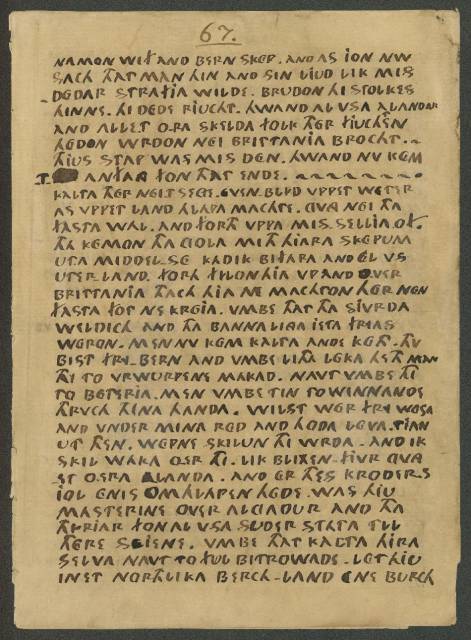 67.
NAMON WIT AND BERN SKEP. AND AS ION NW
SACH THAT MAN HIN AND SIN LIUD LIK MIS
DEDAR STRAFIA WILDE. BRUDON HI STOLKES
HINNE. HI DEDE RIUCHT. HWAND AL VSA ALANDAR
AND ALLET OTHRA SKELDA FOLK THER FIUCHTEN
HEDON WRDON NEI BRITTANIA BROCHT.
THIUS STAP WAS MIS DEN. HWAND NU KEM
T. ANFANG FON THAT ENDE.
KALTA THER NEI.T.SEGE. EVEN BLYD VPPET WETER
AS VPPET LAND HLAPA MACHTE. GVNG NEI THA
FASTA WAL. AND FORTH VPPA MIS-SELLIA OF.
THA KEMON THA GOLA MITH HIARA SKEPUM
UTA MIDDEL-SE KADIK BIFARA AND EL VS
UTER LAND. FORTH FYLON HIA VP AND OVER
BRITTANIA THACH HIA NE MACHTON THER NEN
FASTA FOT NE KREIA. VMBE THAT THA SIVRDA
WELDICH AND THA BANNALINGA IETA FRIAS
WERON. MEN NV KEM KALTA ANDE KETH. THV
BIST FRI-BERN AND VMBE LITHA LEKA HETH MAN
THI TO VRWURPENE MAKAD. NAVT VMBE THI
TO BETERIA. MEN VMBE TIN TO WINNANDE
THRVCH THINA HANDA. WILST WER FRI WESA
AND VNDER MINA RED AND HODA LEVA. TIAN
UT THEN. WEPNE SKILUN THI WRDA. AND IK
SKIL WAKA OER THI. LIK BLIXEN-FIVR GVNG
ET OERA ALANDA. AND ER THES KRODERS
IOL ENIS OMHLAPEN HEDE. WAS HIU
MASTERINE OVER ALGADUR AND THA
THYRIAR FON AL VSA SUDER STATA TIL
THERE SEIENE. VMBE THAT KALTA HIRA
SELVA NAVT TO FUL BITROWADE. LET HIU
IN ET NORTHLIKA BERCH-LAND ENE BURCH